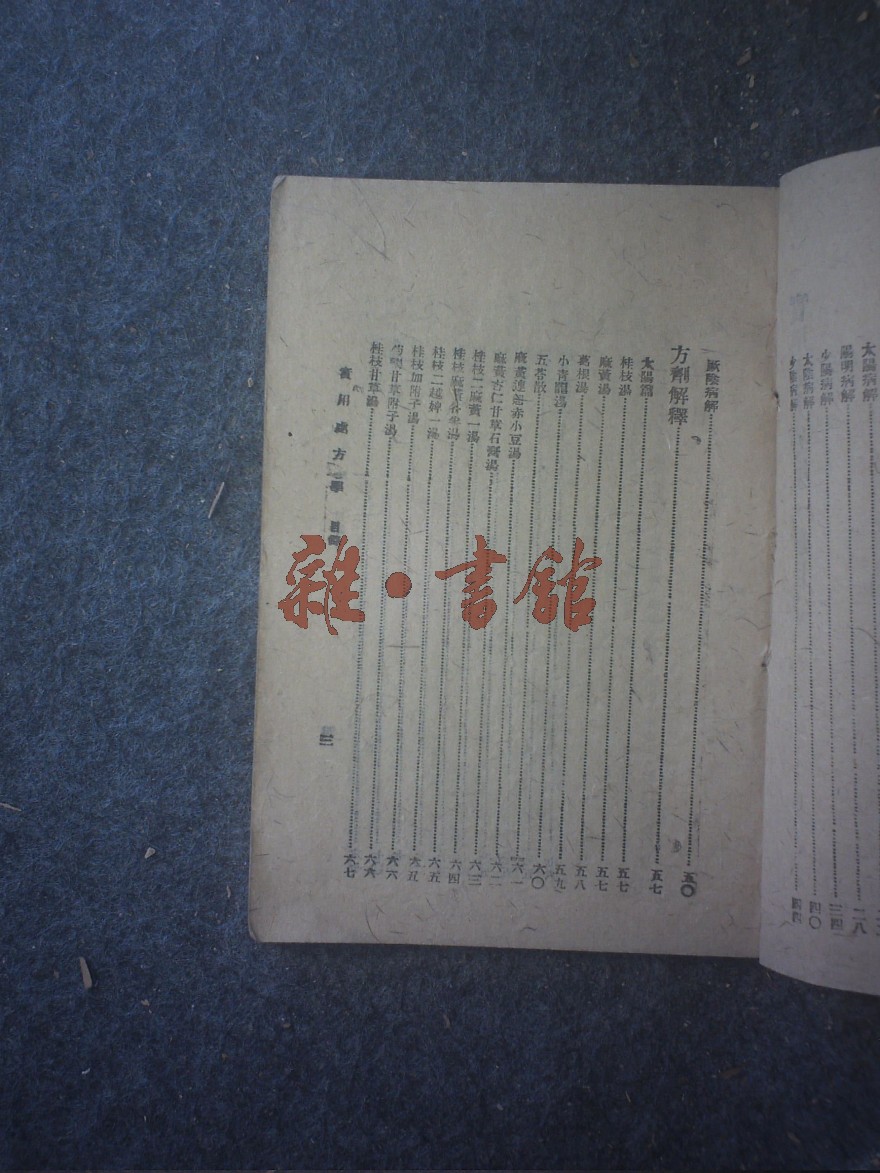 太陽病解
陽明病解……二八
少陽病解……三四
太陰病解……四〇
少陰病解……四四
厥陰病解……五〇
方劑解釋……五七
太陽篇……五七
桂枝湯……五七
麻黃湯……五八
葛根湯……五九
小青龍湯……六〇
五苓散……六一
麻黃連翹赤小豆湯……六二
麻黃杏仁甘草石膏湯……六三
桂枝二麻黃一湯……六四
桂枝麻黃各半湯……六五
桂枝二越婢一湯……六五
桂枝加附子湯……六六
芍藥甘草附子湯……六六
桂枝甘草湯……六七
實用處方學 目錄
三
雜·書館